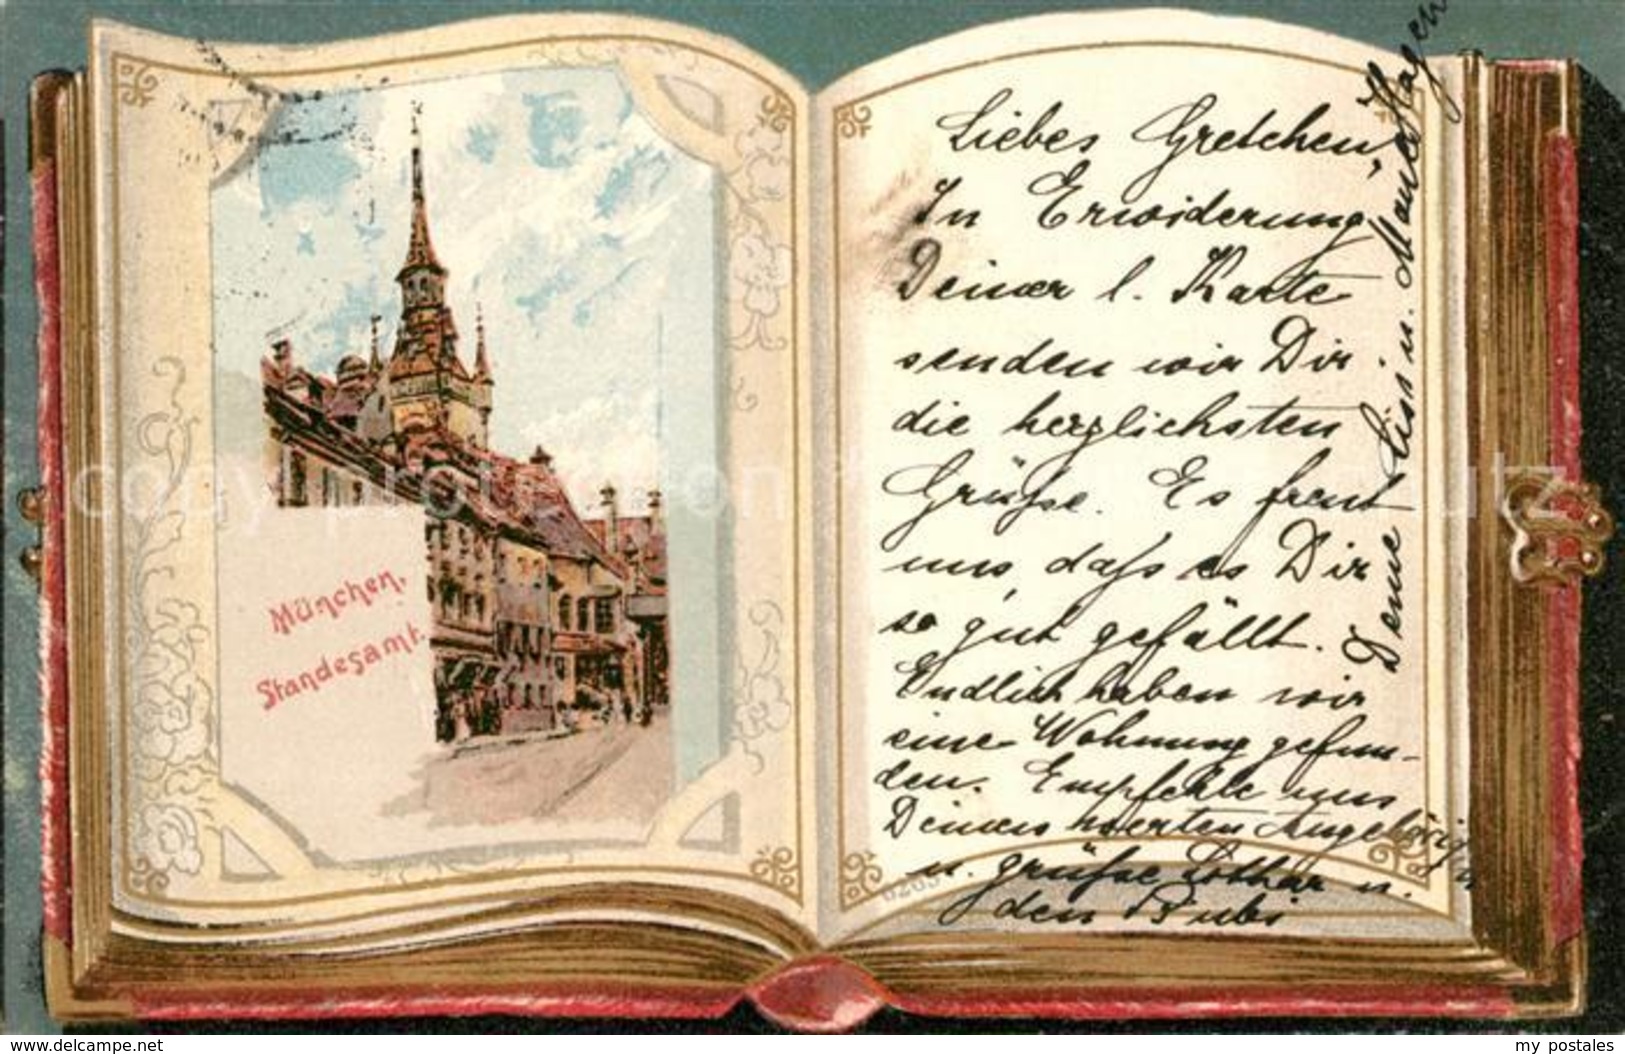 München,
Standesamt.
Liebes Gretchen,
In Erwiderung
Deiner l. Karte
senden wir Dir
die herzlichsten
Grüße. Es freut
uns, daß es Dir
so gut gefällt.
Endlich haben wir
eine Wohnung gefun-
den. Empfehle uns
Deinen werten Angehörigen
u. grüße Lothar u.
den Bubi
Deine
Hagen
6265
copyprotection
www.delcampe.net
my_postales